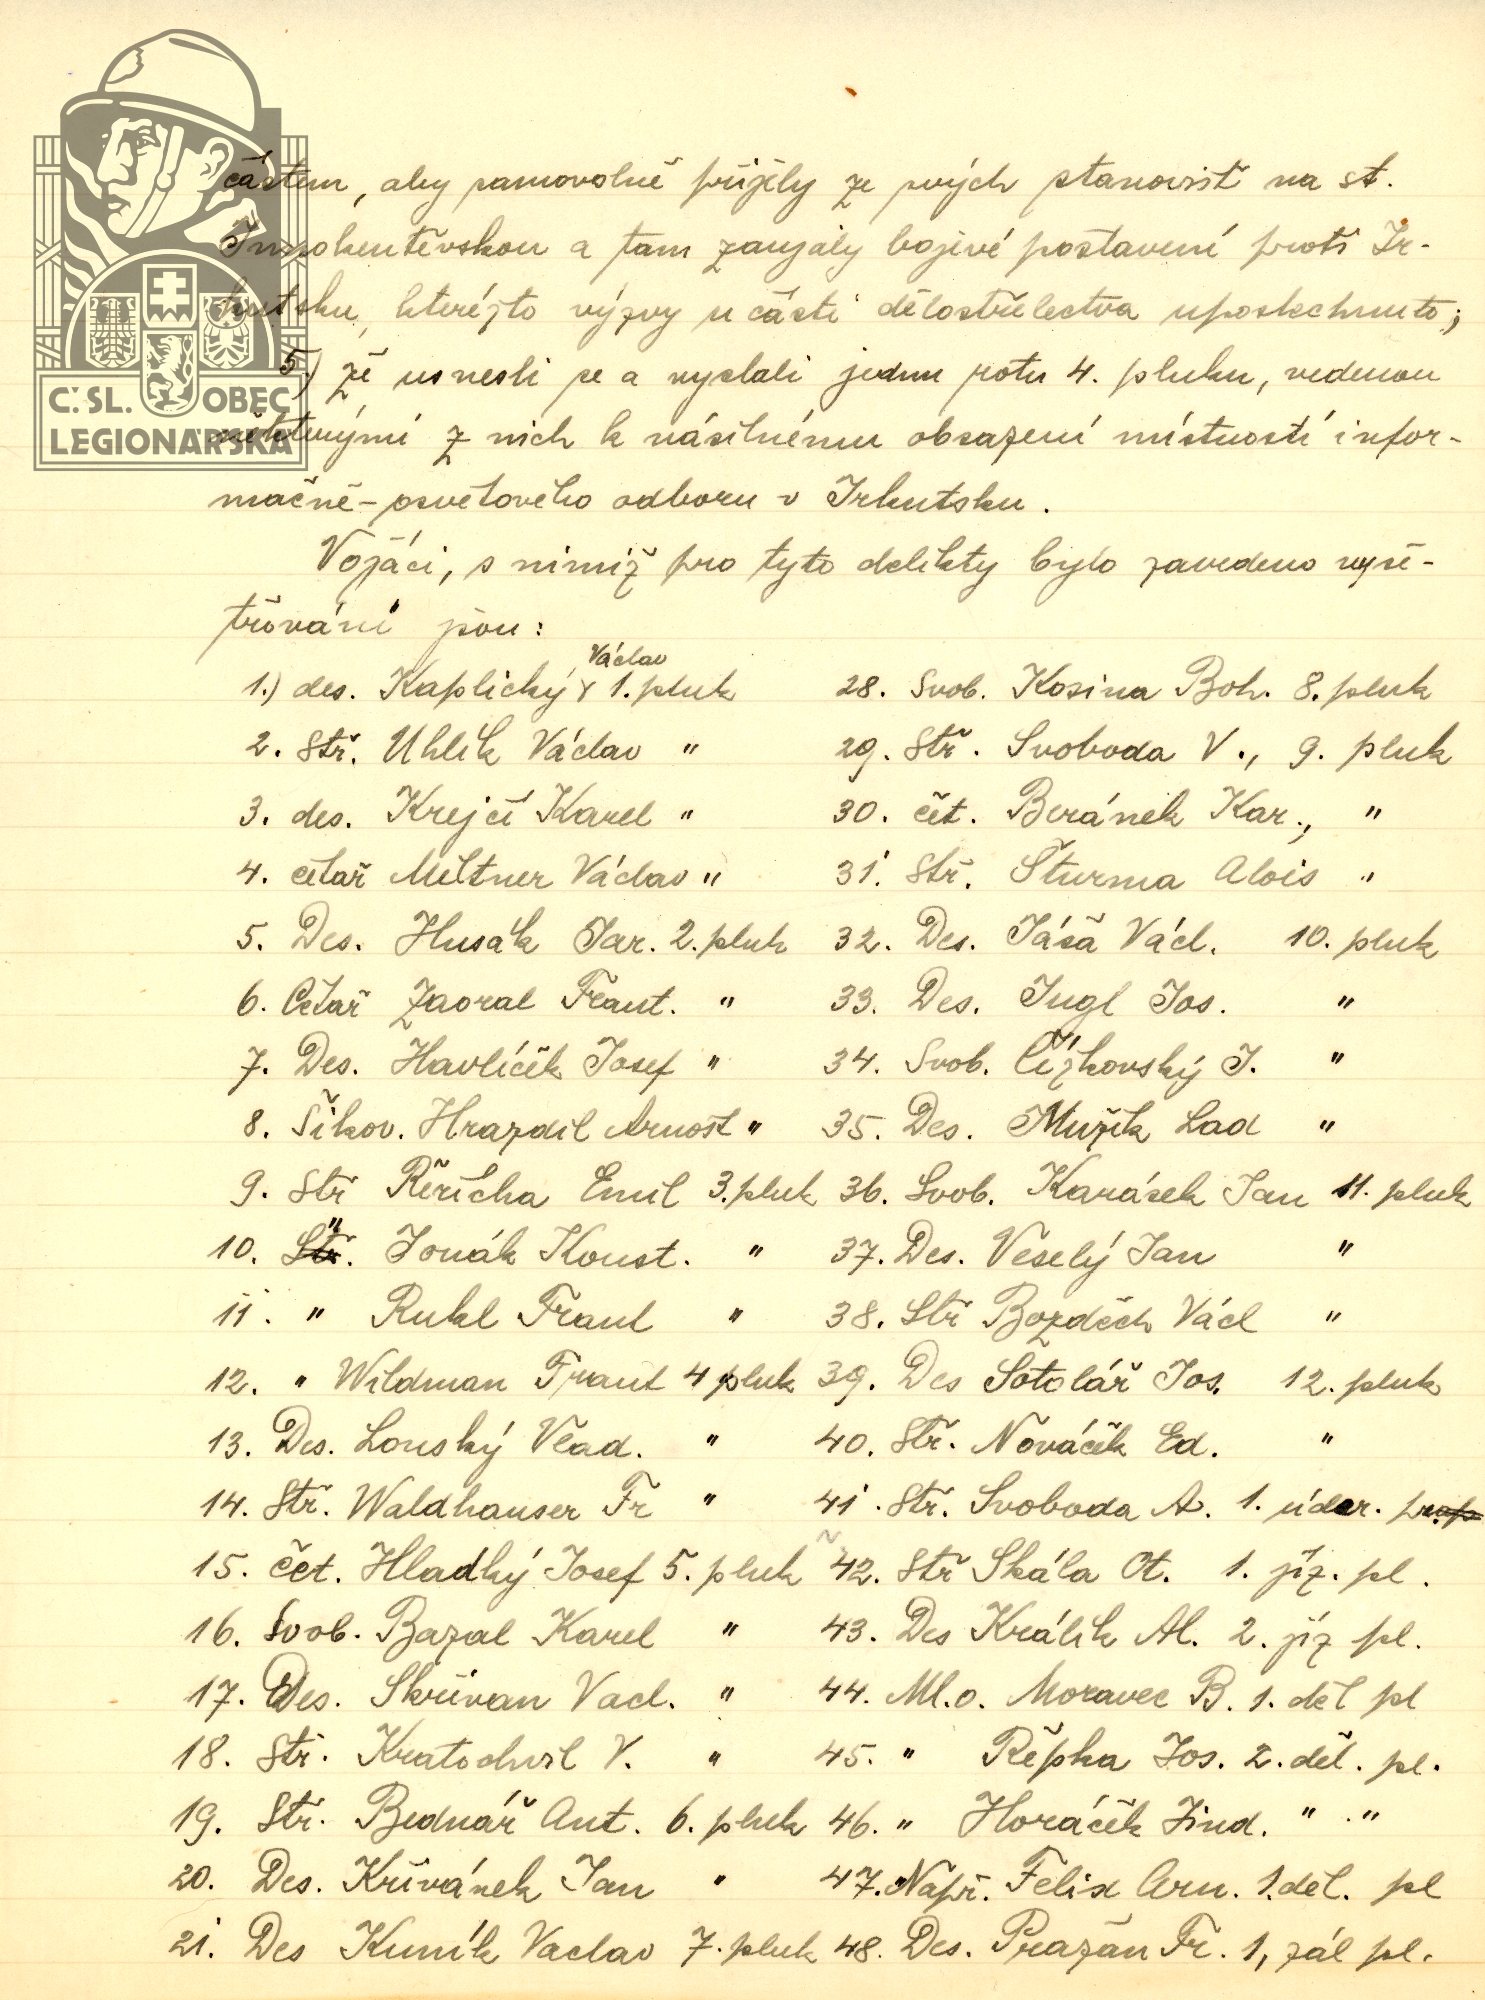 částem, aby samovolně přijely ze svých stanovišť na st.
Innokentěvskou a tam zaujaly bojivé postavení proti Ir-
kutsku, kteréžto výzvy u části dělostřelectva uposlechnuto;
5.) že usnesli se a vyslali jednu rotu 4. pluku, vedenou
některými z nich k násilnému obsazení místností infor-
mačně-osvětového odboru v Irkutsku.
Vojáci, s nimiž pro tyto delikty bylo zavedeno vyše-
třování jsou:
1.) des. Kaplický Václav 1. pluk
2. Stř. Uhlík Václav "
3. des. Krejčí Karel "
4. četař Meltner Václav "
5. Des. Husák Jar. 2. pluk
6. Četař Zaoral Frant. "
7. Des. Havlíček Josef "
8. Šikov. Hrazdil Arnošt "
9. Stř Řeřicha Emil 3. pluk
10. Stř. Jonák Konst. "
11. " Rukl Frant "
12. " Wildman Frant 4 pluk
13. Des. Louský Vlad. "
14. Stř. Waldhauser Fr "
15. čet. Hladký Josef 5. pluk
16. Svob. Bazal Karel "
17. Des. Skřivan Vacl. "
18. Stř. Kratochvil V. "
19. Stř. Bednář Ant. 6. pluk
20. Des. Křivánek Jan "
21. Des Kuník Vaclav 7. pluk
28. Svob. Kosina Boh. 8. pluk
29. Stř. Svoboda V., 9. pluk
30. čet. Beránek Kar., "
31. Stř. Šturma Alois "
32. Des. Jáša Václ. 10. pluk
33. Des. Jugl Jos. "
34. Svob. Čížkovský J. "
35. Des. Mužík Lad "
36. Svob. Karásek Jan 11. pluk
37. Des. Veselý Jan "
38. Stř Bozděch Václ "
39. Des Šotolář Jos. 12. pluk
40. Stř. Nováček Ed. "
41. Stř. Svoboda A. 1. úder.
42. Stř Skála Ot. 1. jíz. pl.
43. Des Králik Al. 2. jíz pl.
44. Ml.o. Moravec B. 1. děl pl
45. " Řepka Jos. 2. děl. pl.
46. " Horáček Jind. " "
47. Např. Felix Arn. 1. děl. pl
48. Des. Pražan Fr. 1, zál pl.
Č. SL. OBEC
LEGIONÁŘSKÁ